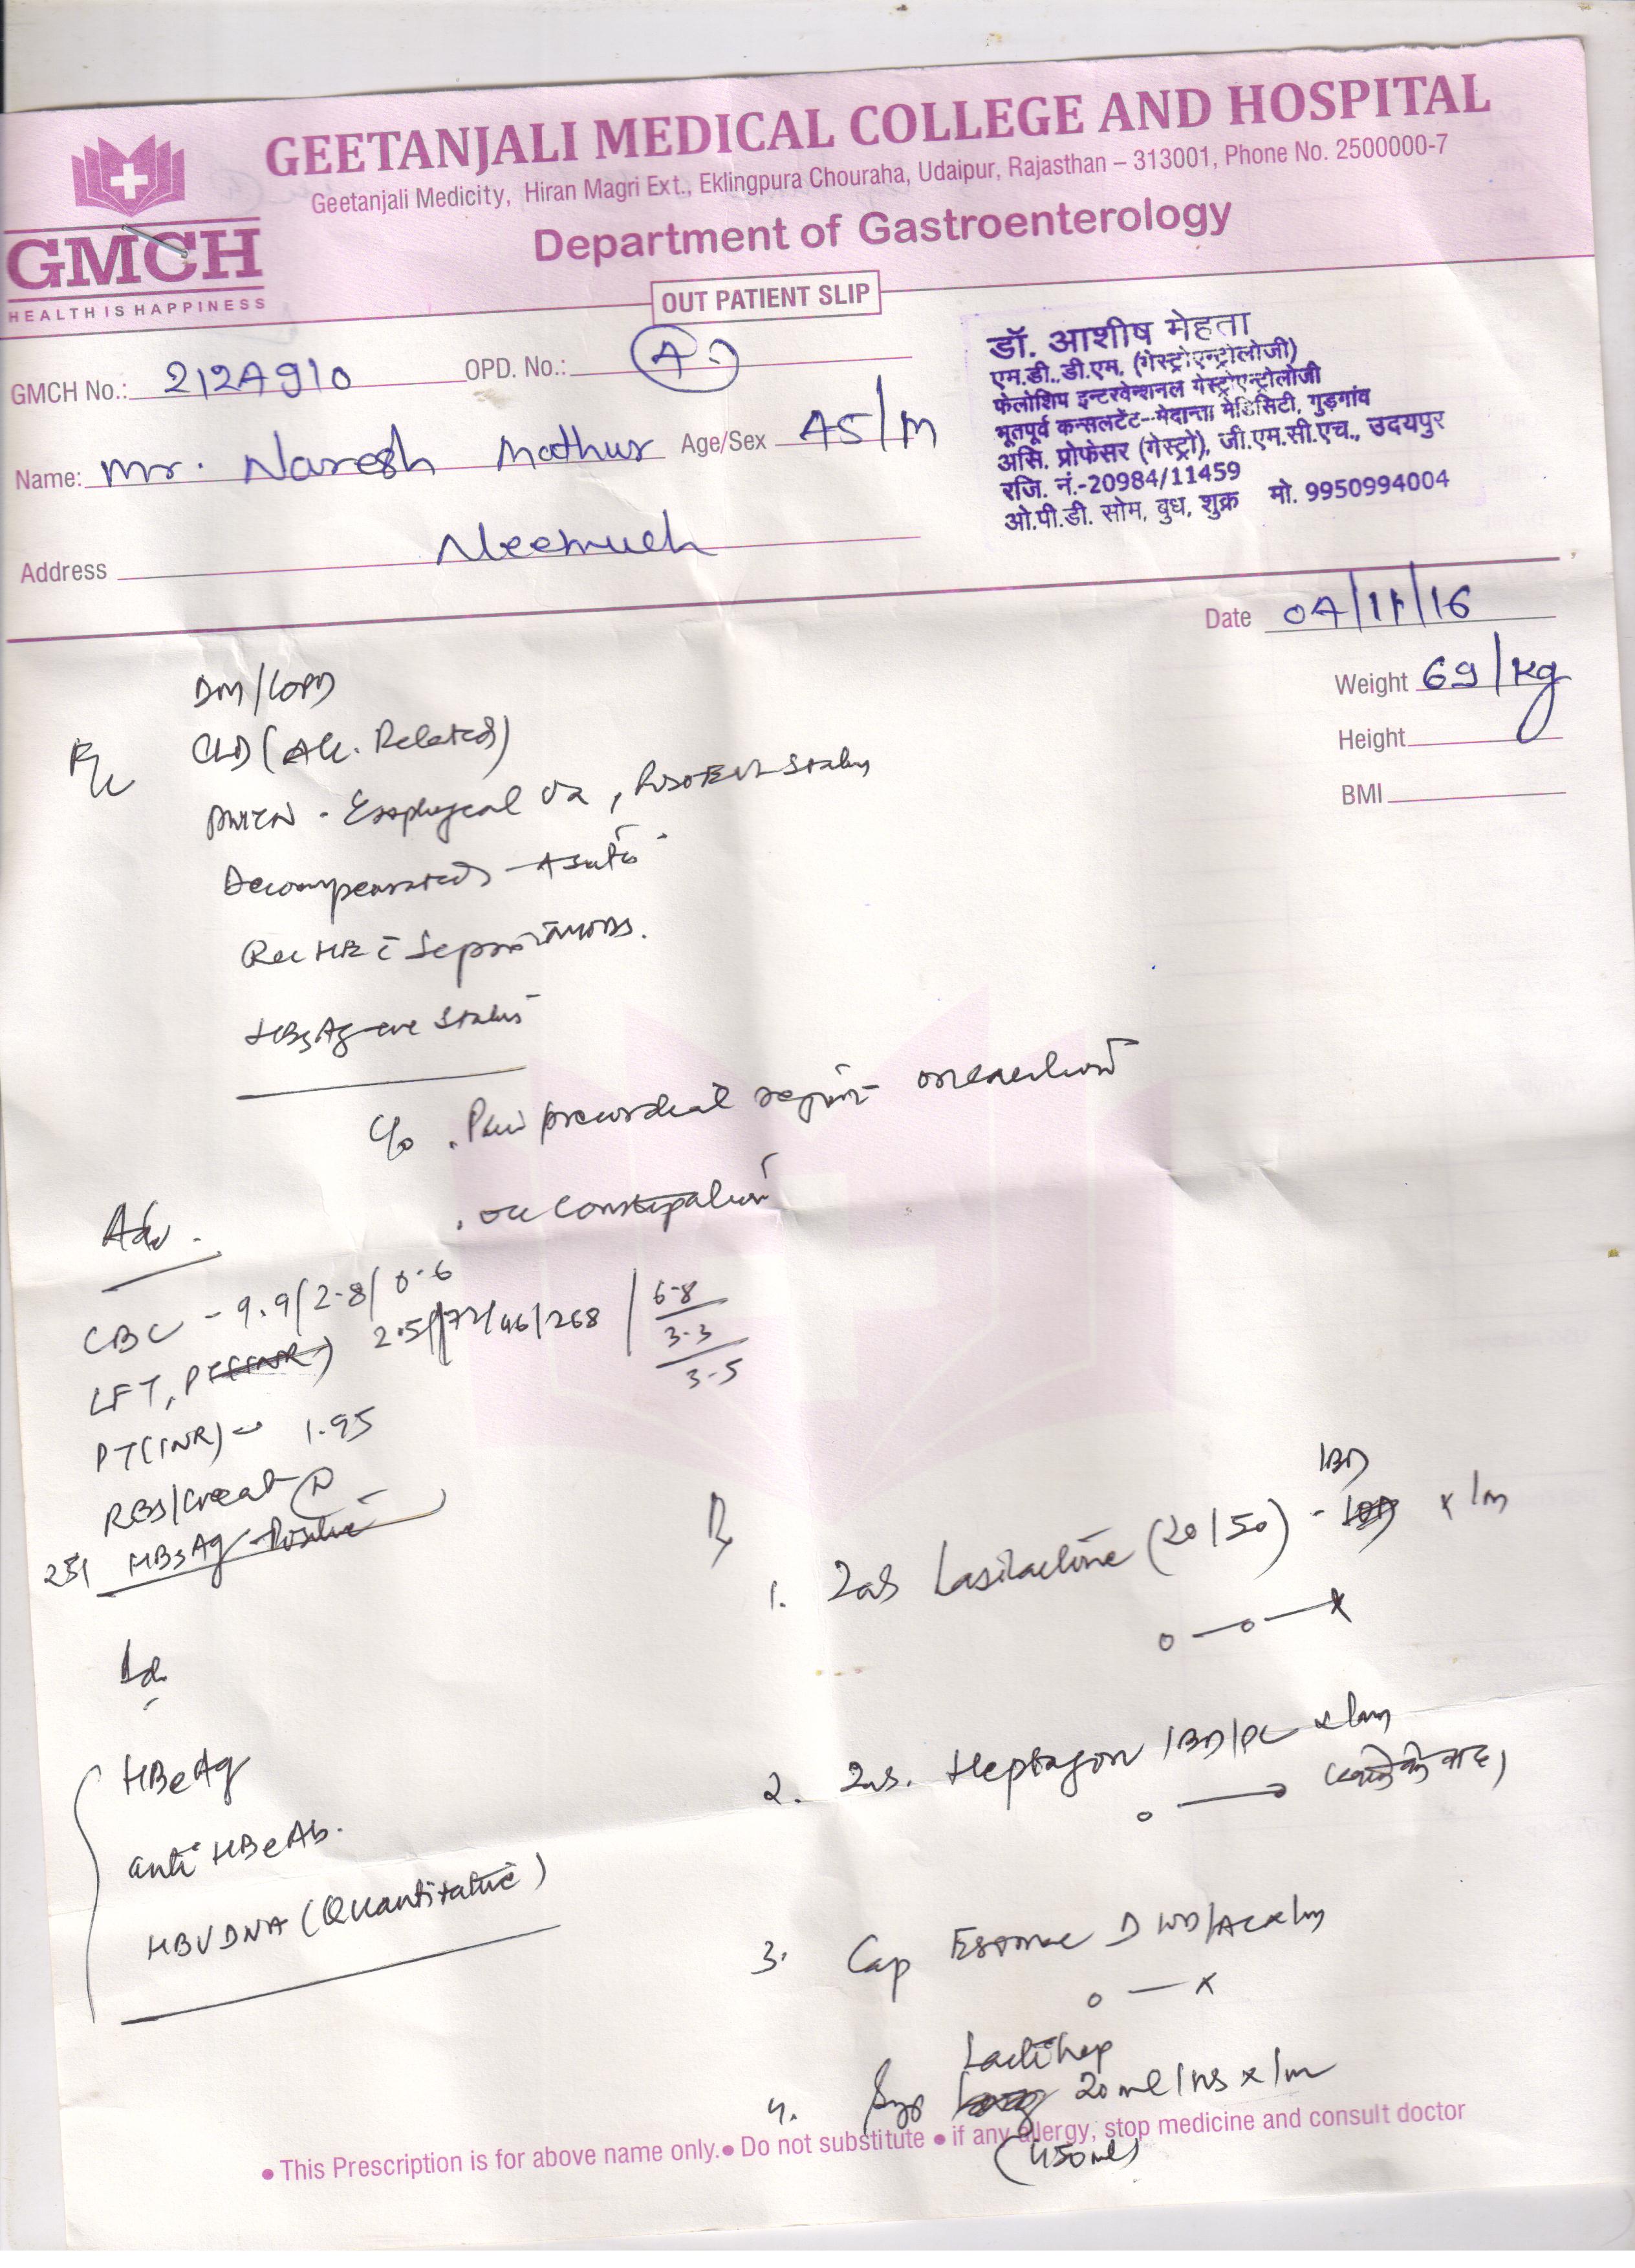 GEETANJALI MEDICAL COLLEGE AND HOSPITAL
Geetanjali Medicity, Hiran Magri Ext., Eklingpura Chouraha, Udaipur, Rajasthan – 313001, Phone No. 2500000-7
Department of Gastroenterology
GMCH
HEALTH IS HAPPINESS
OUT PATIENT SLIP
डॉ. आशीष मेहता
एम.डी.,डी.एम. (गेस्ट्रोएन्ट्रोलोजी)
फेलोशिप इन्टरवेन्शनल गेस्ट्रोएन्ट्रोलोजी
भूतपूर्व कन्सलटेंट--मेदान्ता मेडिसिटी, गुड़गांव
असि. प्रोफेसर (गेस्ट्रो), जी.एम.सी.एच., उदयपुर
रजि. नं.-20984/11459
ओ.पी.डी. सोम, बुध, शुक्र मो. 9950994004
GMCH No.: 2124910 OPD. No.:
Name: Mr. Naresh Mathur Age/Sex 45/M
Address Neemuch
Date 04/11/16
Weight 69/kg
Height
BMI
DM/COPD
CLD (Alc. Related)
Esophageal
Decompensated - Ascites
HBsAg -ve Status
C/o . Pain precordial region on exertion
. constipation
Adv.
CBC - 9.9/2.8/0.6
LFT, 2.5/ /46/268 6.8
3.3
3.5
PT(INR) 1.95
RBS/Creat - N
HBsAg - Positive
HBeAg
anti HBeAb.
HBV DNA (Quantitative)
1. Tab Lasilactone (20/50) - 1BD x 1m
2. Tab. Heptagon 1BD/PC x 1m
3. Cap Esomac D 1OD/AC x 1m
4. Syp Lactihep 20ml HS x 1m
(450ml)
• This Prescription is for above name only. • Do not substitute • if any allergy, stop medicine and consult doctor